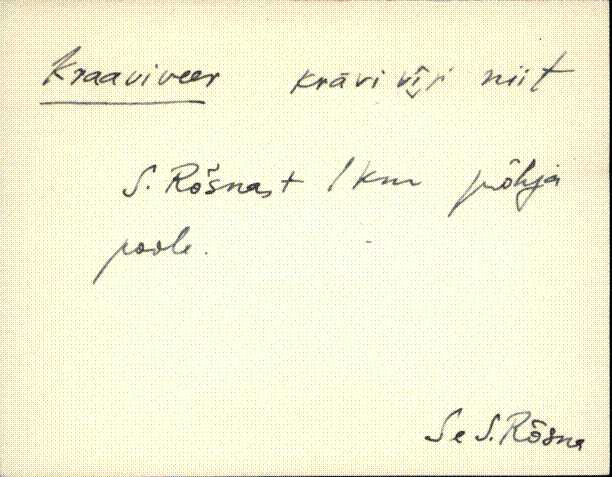 Kraaviveer krāvi vīri niit
S. Rõsnast 1 km põhja
poole.
Se S. Rõsna